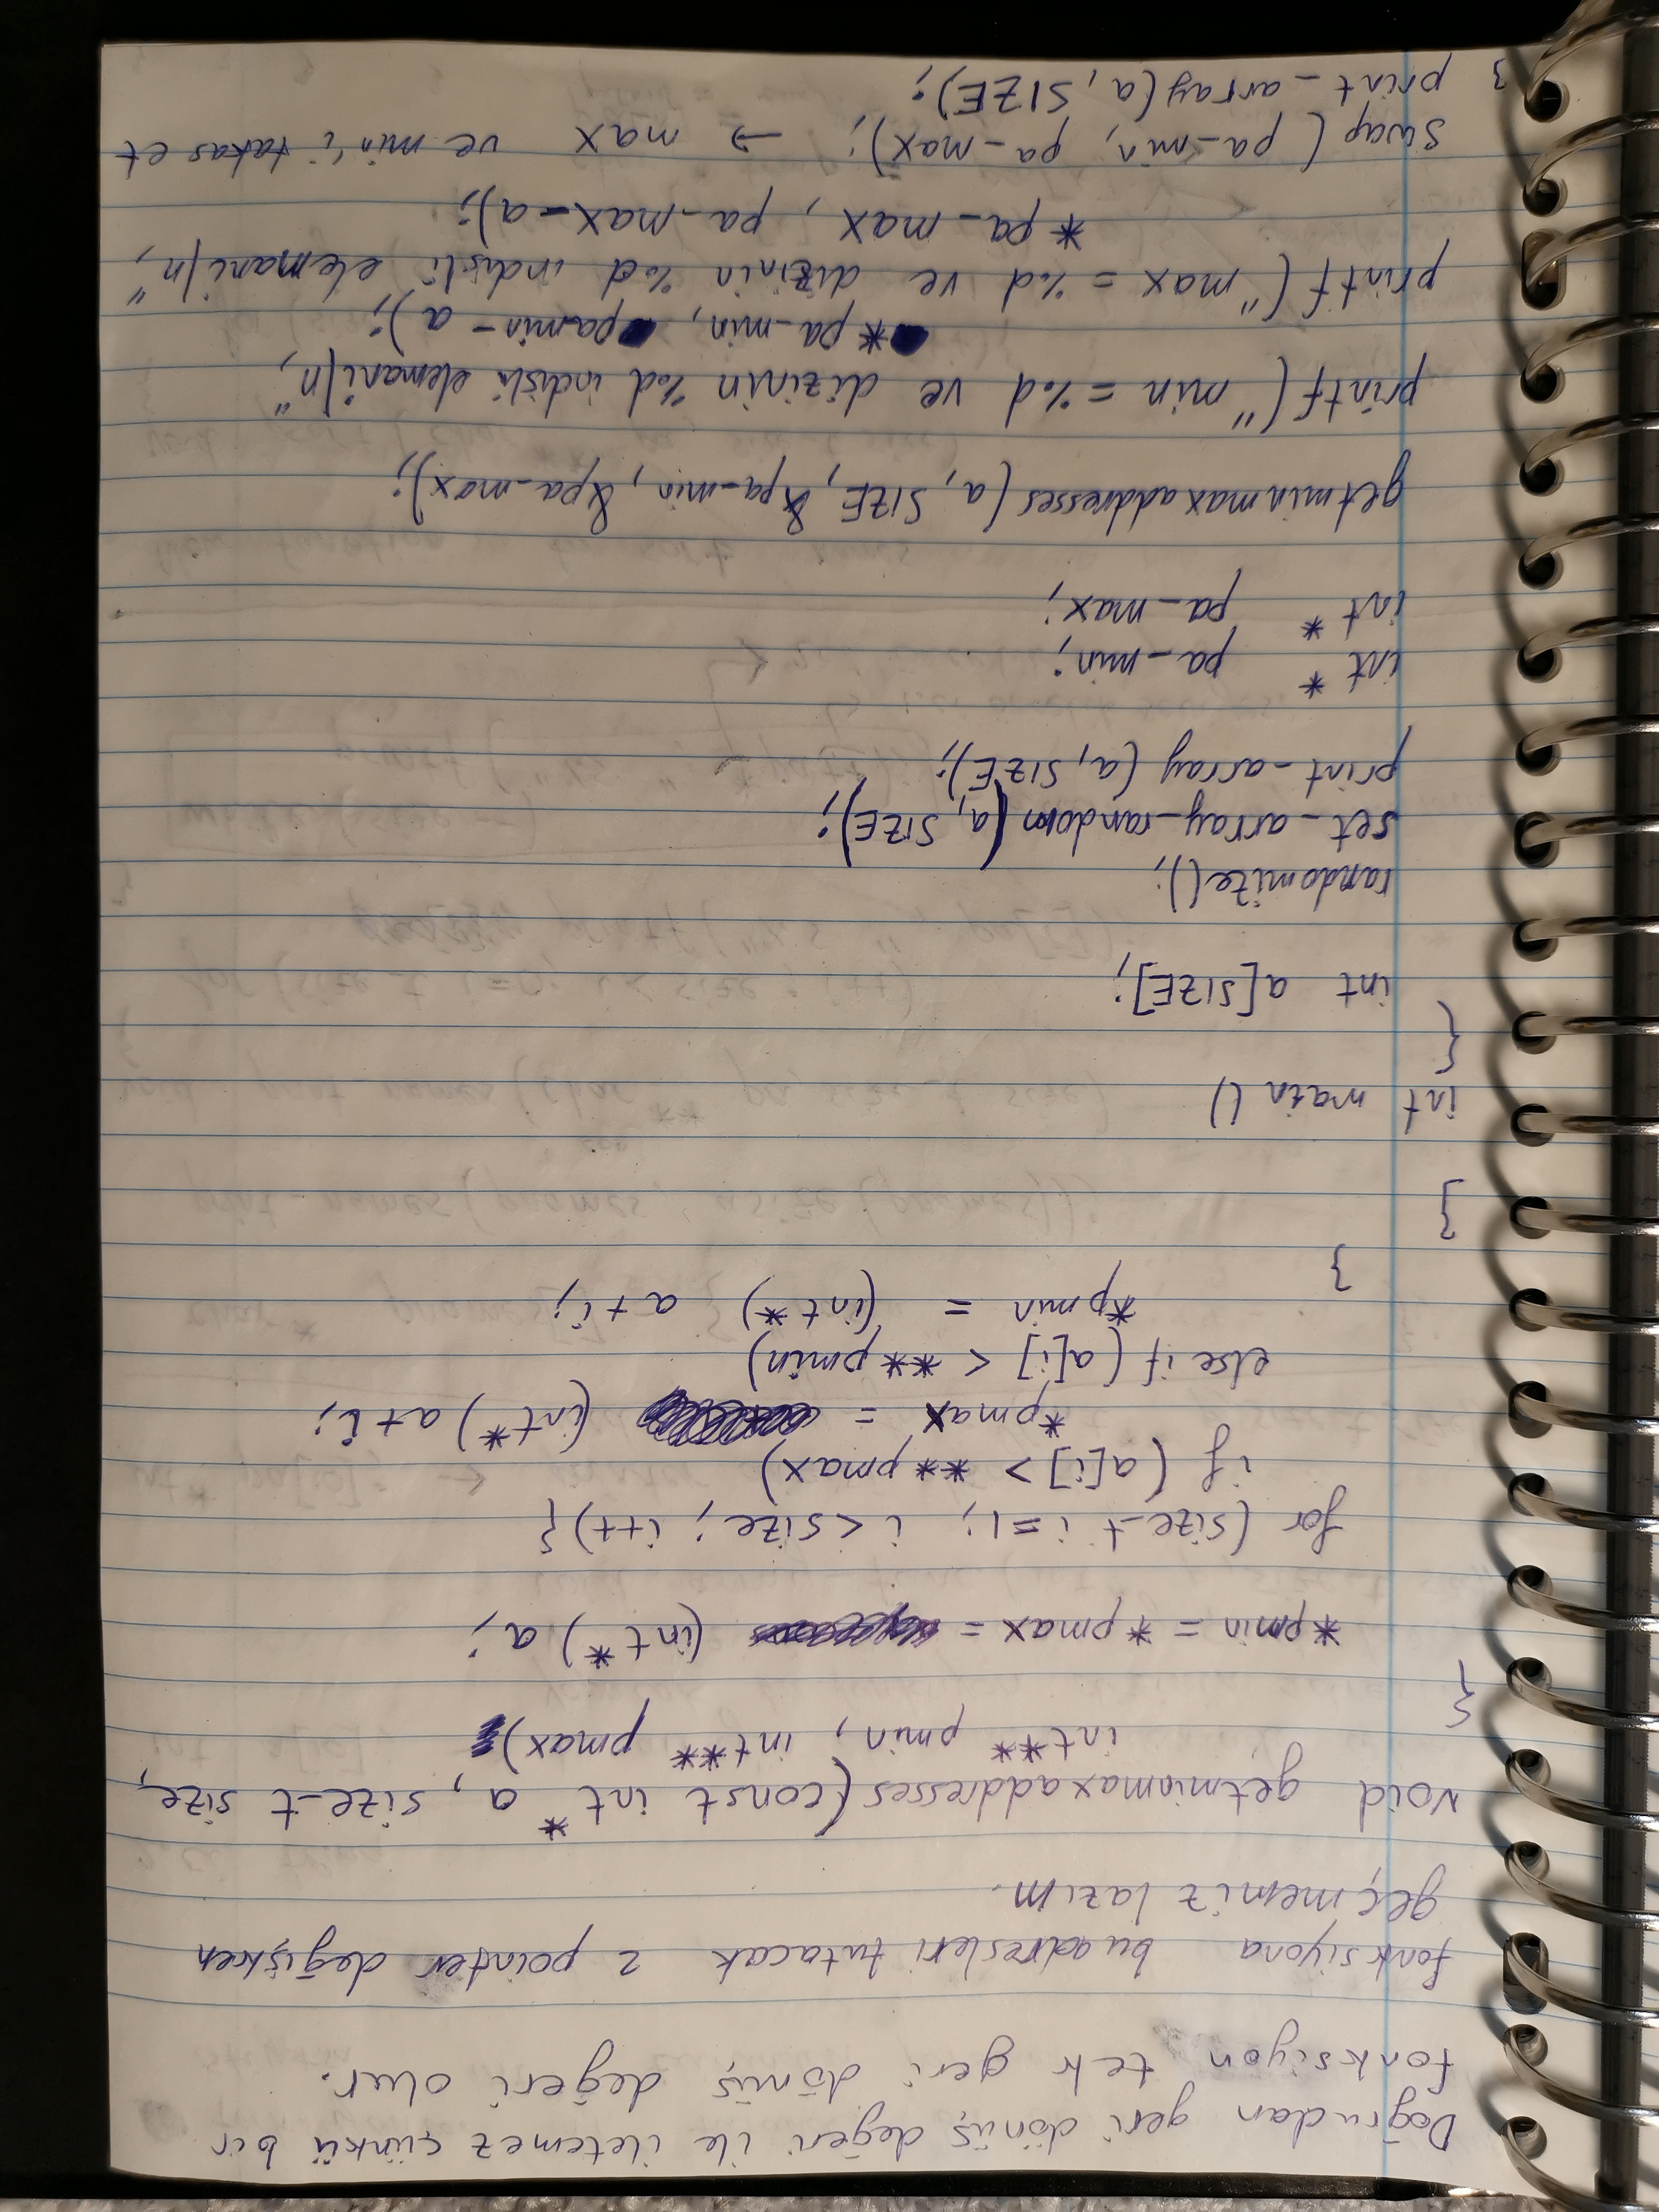 Doğrudan geri dönüş değeri ile iletemez çünkü bir
fonksiyon tek geri dönüş değeri olur.
fonksiyona bu adresleri tutacak 2 pointer değişken
geçmemiz lazım.
void getminmaxaddresses(const int* a, size_t size,
int** pmin, int** pmax)
{
*pmin = *pmax = (int*) a;
for (size_t i=1; i<size; i++){
if (a[i] > **pmax)
*pmax = (int*) a+i;
else if (a[i] < **pmin)
*pmin = (int*) a+i;
}
}
int main()
{
int a[SIZE];
randomize();
set_array_random(a, SIZE);
print_array(a, SIZE);
int* pa_min;
int* pa_max;
getminmaxaddresses(a, SIZE, &pa_min, &pa_max);
printf("min = %d ve dizinin %d indisli elemani|n",
*pa_min, pa_min - a);
printf("max = %d ve dizinin %d indisli elemani|n",
*pa_max, pa_max - a);
swap(pa_min, pa_max); → max ve min'i takas et
} print_array(a, SIZE);